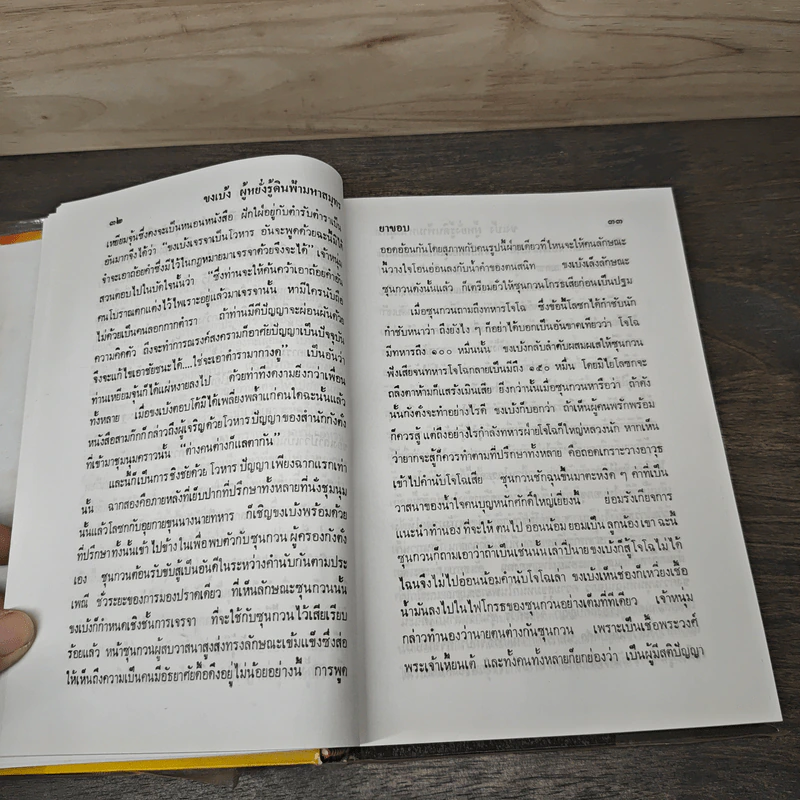 ๓๒
ขงเบ้ง ผู้หยั่งรู้ดินฟ้ามหาสมุทร
เหยียมจุ้นซึ่งคงจะเป็นหนอนหนังสือ ฝักใฝ่อยู่กับตำรับตำราเป็น
อันมากจึงได้ว่า "ขงเบ้งเจรจาเป็นโวหาร อันจะพูดด้วยฉะนี้มิได้
จำจะเอาถ้อยคำซึ่งมีไว้ในกฎหมายมาเจรจาด้วยจึงจะได้" เจ้าหนุ่ม
สวนตอบไปในบัดใจนั้นว่า "ซึ่งท่านจะให้ค้นคว้าเอาถ้อยคำอัน
คนโบราณตกแต่งไว้ไพเราะอยู่แล้วมาเจรจานั้น หามีใครนับถือ
ไม่ด้วยเป็นคนลอกกากตำรา ถ้าท่านมีปัญญาจะผ่อนผันด้วย
ความคิดตัว ถึงจะทำการณรงค์สงครามก็อาศัยปัญญาเป็นปัจจุบัน
จึงจะแก้ไขเอาชัยชนะได้....ใช่จะเอาตำรามากางดู" เป็นอันว่า
ท่านเหยียมจุ้นก็ได้แผ่หงายลงไป ด้วยท่าทีงดงามยิ่งกว่าเพื่อน
ทั้งหลาย เมื่อขงเบ้งตอบโต้มิได้เพลี่ยงพล้ำแก่คนใดฉะนั้นแล้ว
หนังสือสามก๊กก็กล่าวถึงผู้เจริญด้วยโวหารปัญญาของสำนักกังตั๋ง
ที่เข้ามาชุมนุมคราวนั้น "ต่างคนต่างก็แลตากัน"
และนี่ก็เป็นการชิงชัยด้วยโวหารปัญญาเพียงฉากแรกเท่า
นั้น ฉากสองคือภายหลังที่เยียบปากที่ปรึกษาทั้งหลายที่นั่งชุมนุม
นั้นแล้วโลซกกับอุยกายขุนนางนายทหาร ก็เชิญขงเบ้งพร้อมด้วย
ที่ปรึกษาทั้งนั้นเข้าไปข้างในเพื่อพบตัวกับซุนกวน ผู้ครองกังตั๋ง
เอง ซุนกวนต้อนรับขับสู้เป็นอันดีในระหว่างคำนับกันตามประ
เพณี ชั่วระยะของการมองปราดเดียว ที่เห็นลักษณะซุนกวนนั้น
ขงเบ้งก็กำหนดเชิงชั้นการเจรจา ที่จะใช้กับซุนกวนไว้เสียเรียบ
ร้อยแล้ว หน้าซุนกวนผู้สบวาสนาสูงส่งทรงลักษณะเข้มแข็งซึ่งส่อ
ให้เห็นถึงความเป็นคนมีอัธยาศัยดื้อดึงอยู่ไม่น้อยอย่างนี้ การพูด
ยาขอบ
๓๓
ออดอ้อนกันโดยสุภาพกับคนรูปนี้ฝ่ายเดียวที่ไหนจะให้คนลักษณะ
นี้วางใจโอนอ่อนลงกับน้ำคำของคนสนิท ขงเบ้งเล็งลักษณะ
ซุนกวนดังนั้นแล้ว ก็เตรียมยั่วให้ซุนกวนโกรธเสียก่อนเป็นปฐม
เมื่อซุนกวนถามถึงทหารโจโฉ ซึ่งข้อนี้โลซกได้กำชับนัก
กำชับหนาว่า ถึงยังไง ๆ ก็อย่าได้บอกเป็นอันขาดเทียวว่า โจโฉ
มีทหารถึง ๑๐๐ หมื่นนั้น ขงเบ้งกลับลำคำผสมผเลให้ซุนกวน
ฟังเสียจนทหารโจโฉกลายเป็นมีถึง ๑๕๐ หมื่น โดยมิไยโลซกจะ
ถลึงตาห้ามก็แสร้งเมินเสีย ยิ่งกว่านั้นเมื่อซุนกวนหารือว่า ถ้าดัง
นั้นกังตั๋งจะทำอย่างไรดี ขงเบ้งก็บอกว่า ถ้าเห็นผู้คนพรักพร้อม
ก็ควรสู้ แต่ถึงอย่างไรกำลังทหารฝ่ายโจโฉก็ใหญ่หลวงนัก หากเห็น
ว่ายากจะสู้ก็ควรทำตามที่ปรึกษาทั้งหลาย คือถอดเกราะวางอาวุธ
เข้าไปคำนับโจโฉเสีย ซุนกวนชักฉุนขึ้นมาตะหงิด ๆ ค่าที่เป็น
วาสนาของน้ำใจคนบุญหนักศักดิ์ใหญ่เยี่ยงนี้ ย่อมรังเกียจการ
แนะนำทำนอง ที่จะให้ คนไป อ่อนน้อม ยอมเป็น ลูกน้อง เขา ฉะนี้
ซุนกวนก็ถามเอาว่าถ้าเป็นเช่นนั้น เล่าปี่นาย ขงเบ้งก็สู้โจโฉไม่ได้
ไฉนจึงไม่ไปอ่อนน้อมคำนับโจโฉเล่า ขงเบ้งเห็นช่องก็เหวี่ยงเชื้อ
น้ำมันลงไปในไฟโกรธของซุนกวนอย่างเต็มที่ทีเดียว เจ้าหนุ่ม
กล่าวทำนองว่านายคนต่างกันซุนกวน เพราะเป็นเชื้อพระวงศ์
พระเจ้าเหี้ยนเต้ และทั้งคนทั้งหลายก็ยกย่องว่า เป็นผู้มีสติปัญญา